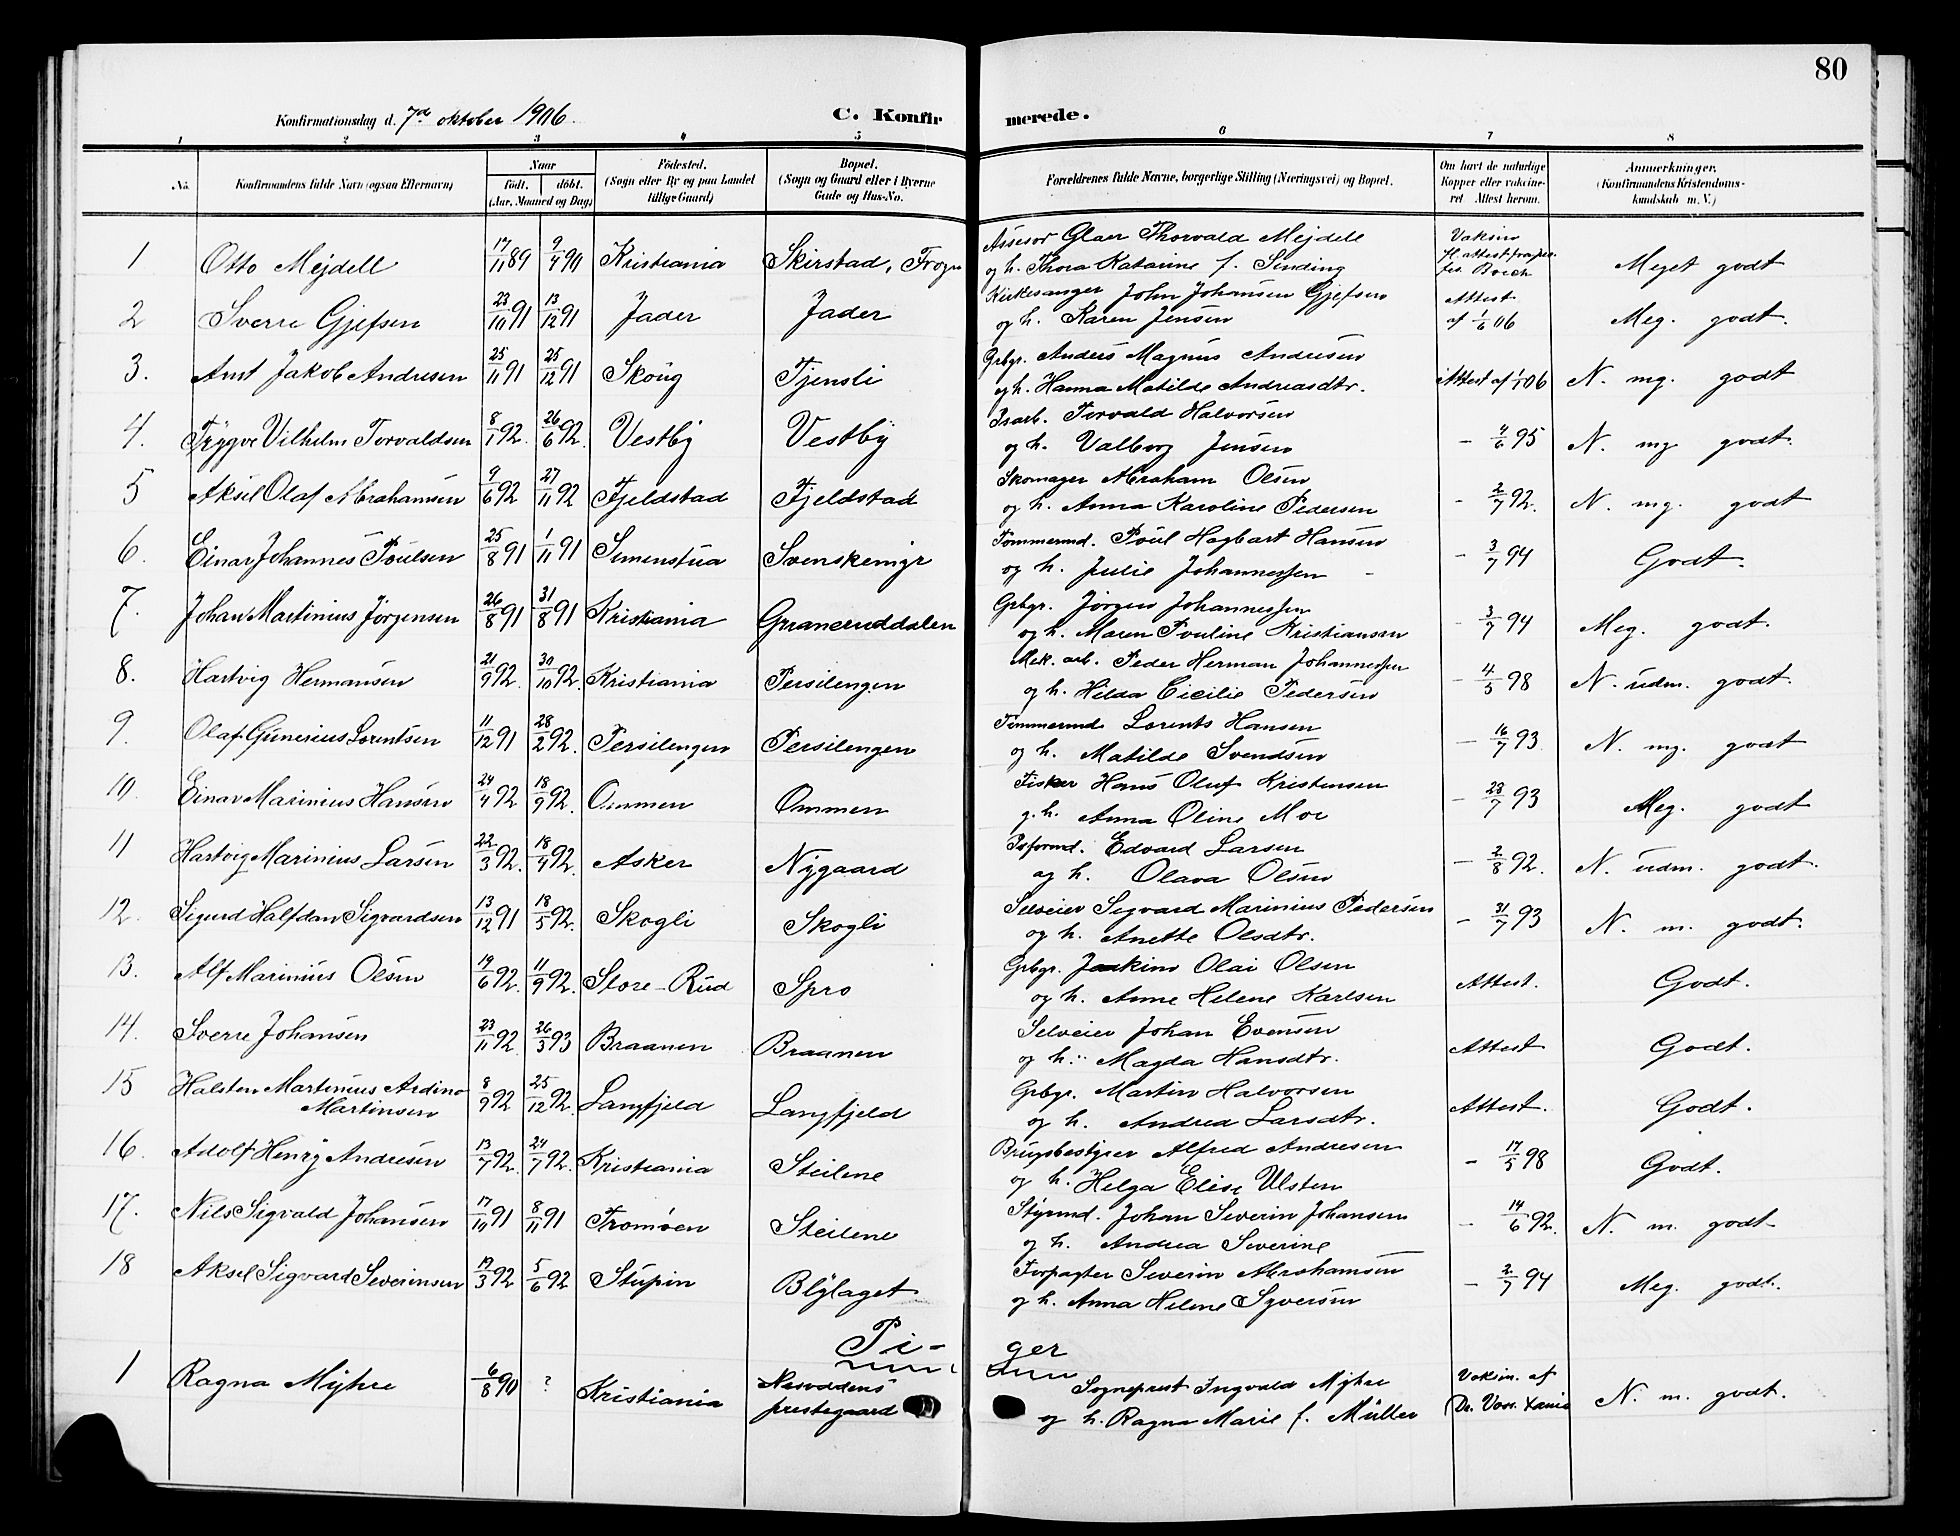 80
Konfirmationsdag d. 7de oktober 1906. C. Konfirmerede.
1 2 3 4 5 6 7 8
No. Konfirmandens fulde Navn (ogsaa Efternavn) Naar født, døbt. (Aar, Maaned og Dag) Fødested. (Sogn eller By og paa Landet tillige Gaard) Bopæl. (Sogn og Gaard eller i Byerne Gade og Hus-No. Forældrenes fulde Navne, borgerlige Stilling (Næringsvei) og Bopæl. Om havt de naturlige Kopper eller vaccineret. Attest herom. Anmerkninger. (Konfirmandens Kristendomskundskab m. V.)
1 Otto Mejdell 17/11 89 9/4 90 Kristiania Skirstad, Frogn Assesor Glaer Thorvald Mejdell Vaksin
og h. Thora Katarine f. Sinding Meget godt
2 Sverre Gjefsen 23/10 91 13/12 91 Jader Jader Kirkesanger John Johansen Gjefsen Attest
og h. Karen Jensen af 1/6 06 Meg. godt.
3. Arnt Jakob Andresen 25/11 91 25/12 91 Skoug Tjensli Grbgr. Anders Magnus Andresen
og h. Hanna Matilde Andreasdtr. N. mg. godt
4. Trygve Vilhelm Torvaldsen 8/1 92. 26/6 92. Vestby Vestby Isarb. Torvald Halvorsen
og h. Valborg Jensen - 4/6 95 N. mg godt.
5 Aksel Olaf Abrahamsen 9/6 92 27/11 92 Fjeldstad Fjeldstad Skomager Abraham Olsen
og h. Anna Karoline Pedersen - 2/7 92. N. mg. godt
6. Einar Johannes Poulsen 25/8 91 1/11 91 Simenstua Svenskemyr Tømmermd. Poul Hagbart Hansen
og h. Julie Johannessen - 3/7 94 Godt.
7. Johan Martinius Jørgensen 26/8 91 31/8 91 Kristiania Graneruddalen Grbgr. Jørgen Johannessen
og h. Maren Pouline Kristiansen - 3/7 94 Meg. godt.
8. Hartvig Hermansen 21/9 92. 30/10 92. Kristiania Persilengen Mek. arb. Peder Herman Johannessen
og h. Hilda Cicilie Pedersen - 4/5 98 N. udm. godt.
9. Olaf Gunerius Lorentsen 11/12 91 28/2 92. Persilengen Persilengen Tømmermd. Lorents Hansen
og h. Matilde Svendsen - 16/7 93 N. mg. godt
10. Einar Marinius Hansen 24/4 92 18/9 92. Ommen Ommen Fisker Hans Oluf Kristensen
g. h. Anna Oline Moe - 23/7 93 Meg. godt
11 Hartvig Marinius Larsen 22/3 92. 18/4 92. Asker Nygaard Isformd. Edvard Larsen
og h. Olava Olsen - 2/8 92. N. udm. godt.
12. Sigurd Halfdan Sigvardsen 13/12 91 18/5 92. Skogli Skogli Selveier Segvard Marinius Pedersen
og h. Anette Olsdtr. - 31/7 93 N. m. godt.
13. Alf Marinius Olsen 19/6 92. 11/9 92. Store-Rud Spro Grbgr. Joakim Olai Olsen
og h. Anne Helene Karlsen Attest. Godt.
14. Sverre Johansen 23/11 92. 26/3 93 Braanen Braanen Selveier Johan Evensen
og h. Magda Hansdtr. Attest Godt.
15 Halsten Martinius Ardino 8/9 92 25/12 92. Langfjeld Langfjeld Grbgr. Martin Halvorsen
Martinsen og h. Andrea Larsdtr. Attest. Godt.
16. Adolf Henry Andresen 13/7 92. 24/7 92. Kristiania Steilene Brugsbestyrer Alfred Andresen
og h. Helga Elise Ulsten - 17/5 98 Godt.
17. Nils Sigvald Johansen 17/10 91 8/11 91 Tromøen Steilene Styrmd. Johan Severin Johansen
og h. Andrea Severine - 14/6 92. N. m. godt
18 Aksel Sigvard Severinsen 17/3 92 5/6 92 Stupin Blylaget Forpagter Severin Abrahamsen
og h. Anna Helene Syversen - 2/7 94 Meg. godt.
Piger
1 Ragna Myhre 6/8 90 ? Kristiania Nesoddens Sogneprest Ingvald Myhre Vaksin. af
prestegaard og h. Ragna Marie f. Müller N. m. godt.